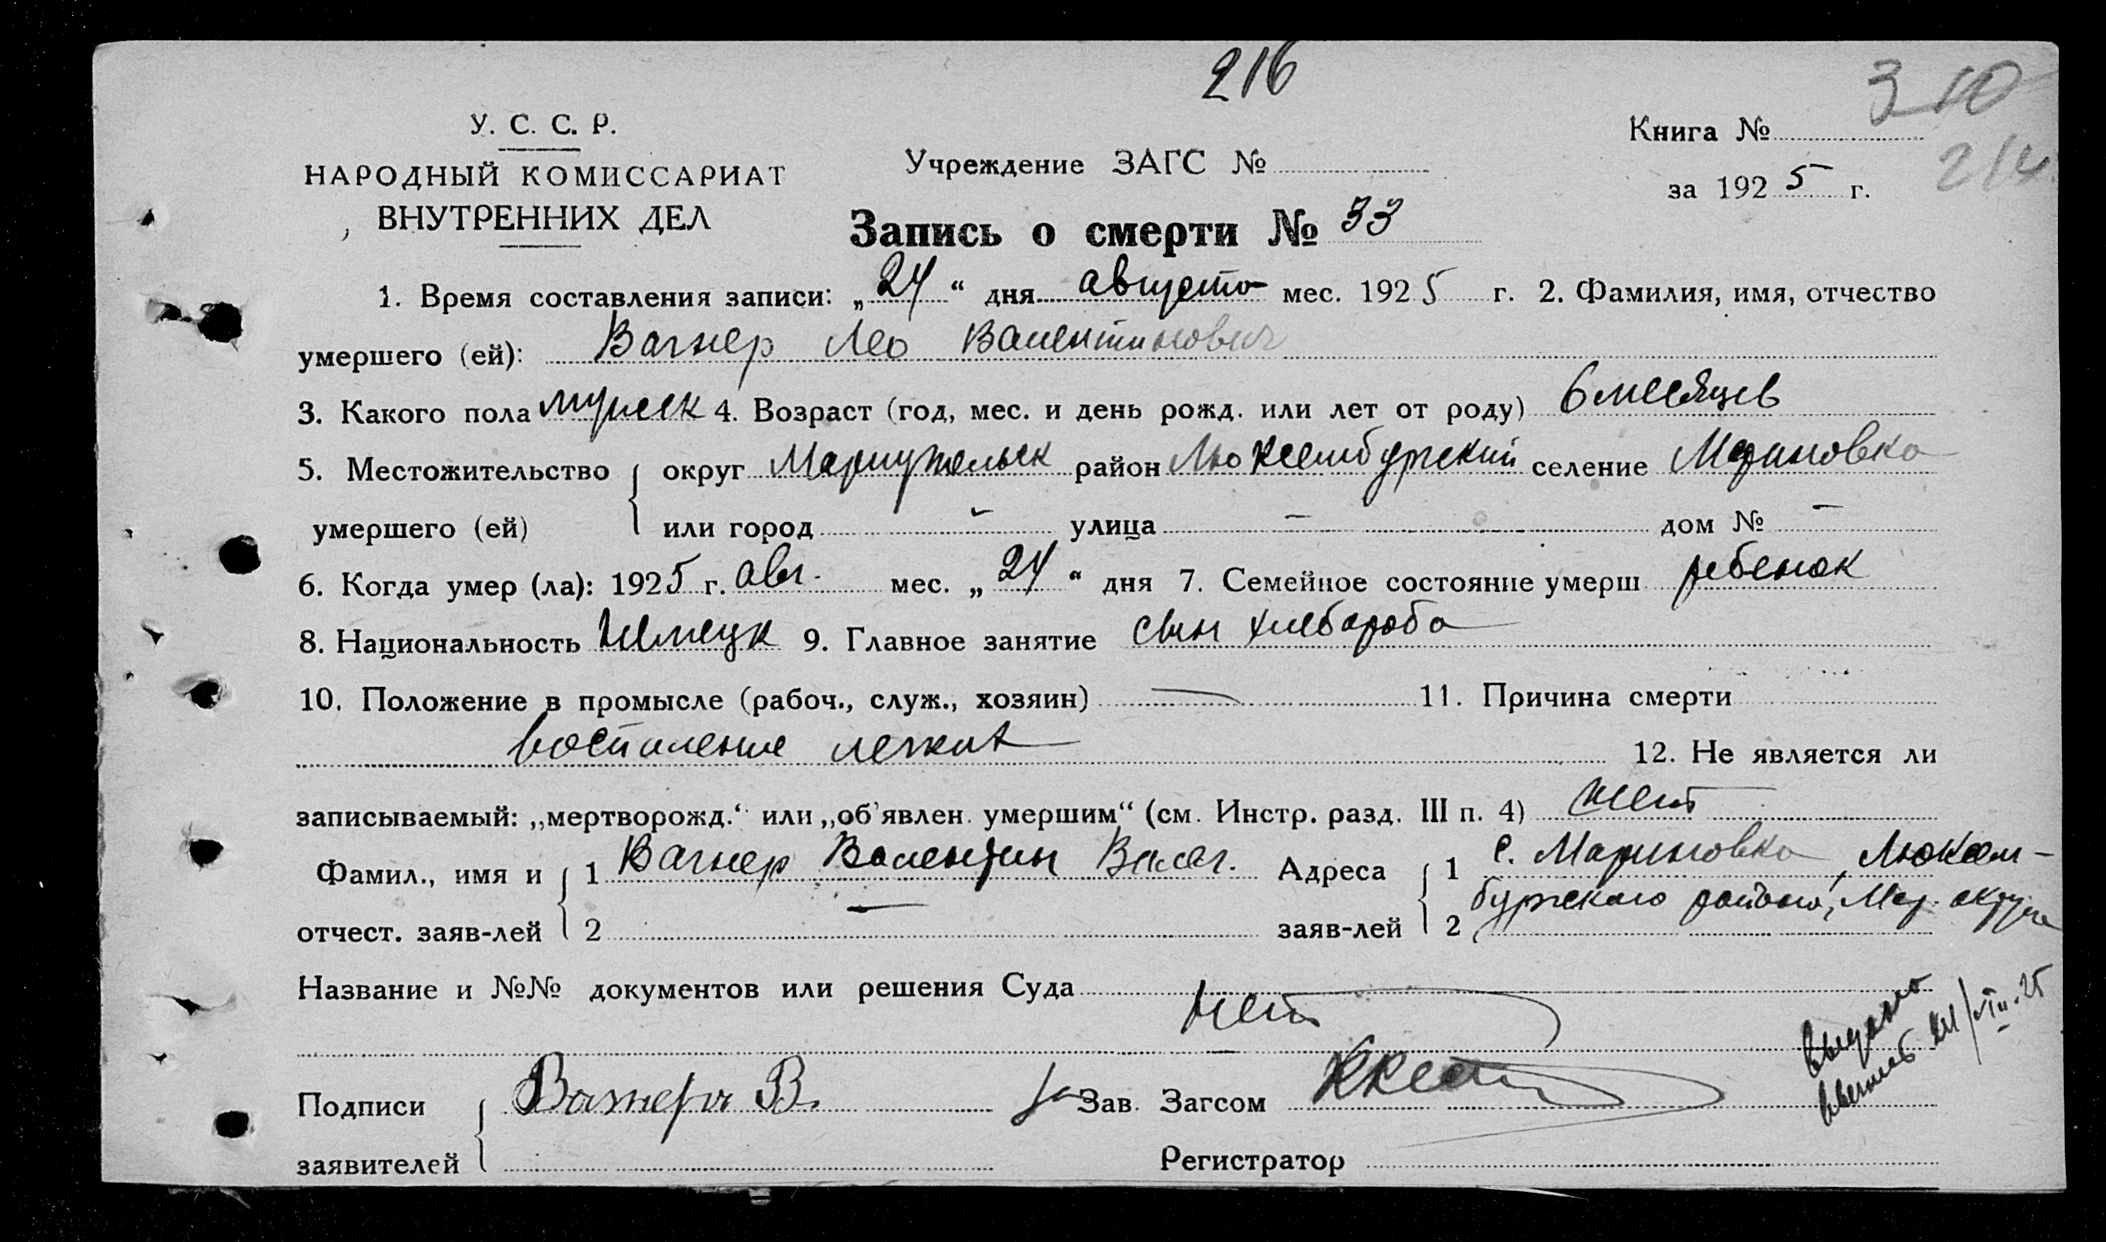 216
310
214
У. С. С. Р.
НАРОДНЫЙ КОМИССАРИАТ
ВНУТРЕННИХ ДЕЛ
Учреждение ЗАГС №
Книга №
за 1925 г.
Запись о смерти № 33
1. Время составления записи: „24“ дня августа мес. 1925 г. 2. Фамилия, имя, отчество
умершего (ей): Вагнер Лео Валентинович
3. Какого пола мужск 4. Возраст (год, мес. и день рожд. или лет от роду) 6 месяцев
5. Местожительство округ Мариупольск район Люксембургский селение Мариновка
умершего (ей) или город – улица – дом № –
6. Когда умер (ла): 1925 г. авг. мес. „24“ дня 7. Семейное состояние умерш ребенок
8. Национальность Немецк 9. Главное занятие сын хлебороба
10. Положение в промысле (рабоч., служ., хозяин) — 11. Причина смерти
воспаление легких 12. Не является ли
записываемый: „мертворожд.“ или „об'явлен. умершим“ (см. Инстр. разд. III п. 4) нет
Фамил., имя и 1 Вагнер Валентин Адреса 1 с. Мариновка, Люксем-
отчест. заяв-лей 2 — заяв-лей 2 бургского района, Мар. округа
Название и №№ документов или решения Суда
нет
Подписи Вагнер В. За Зав. Загсом
заявителей Регистратор
Выдано